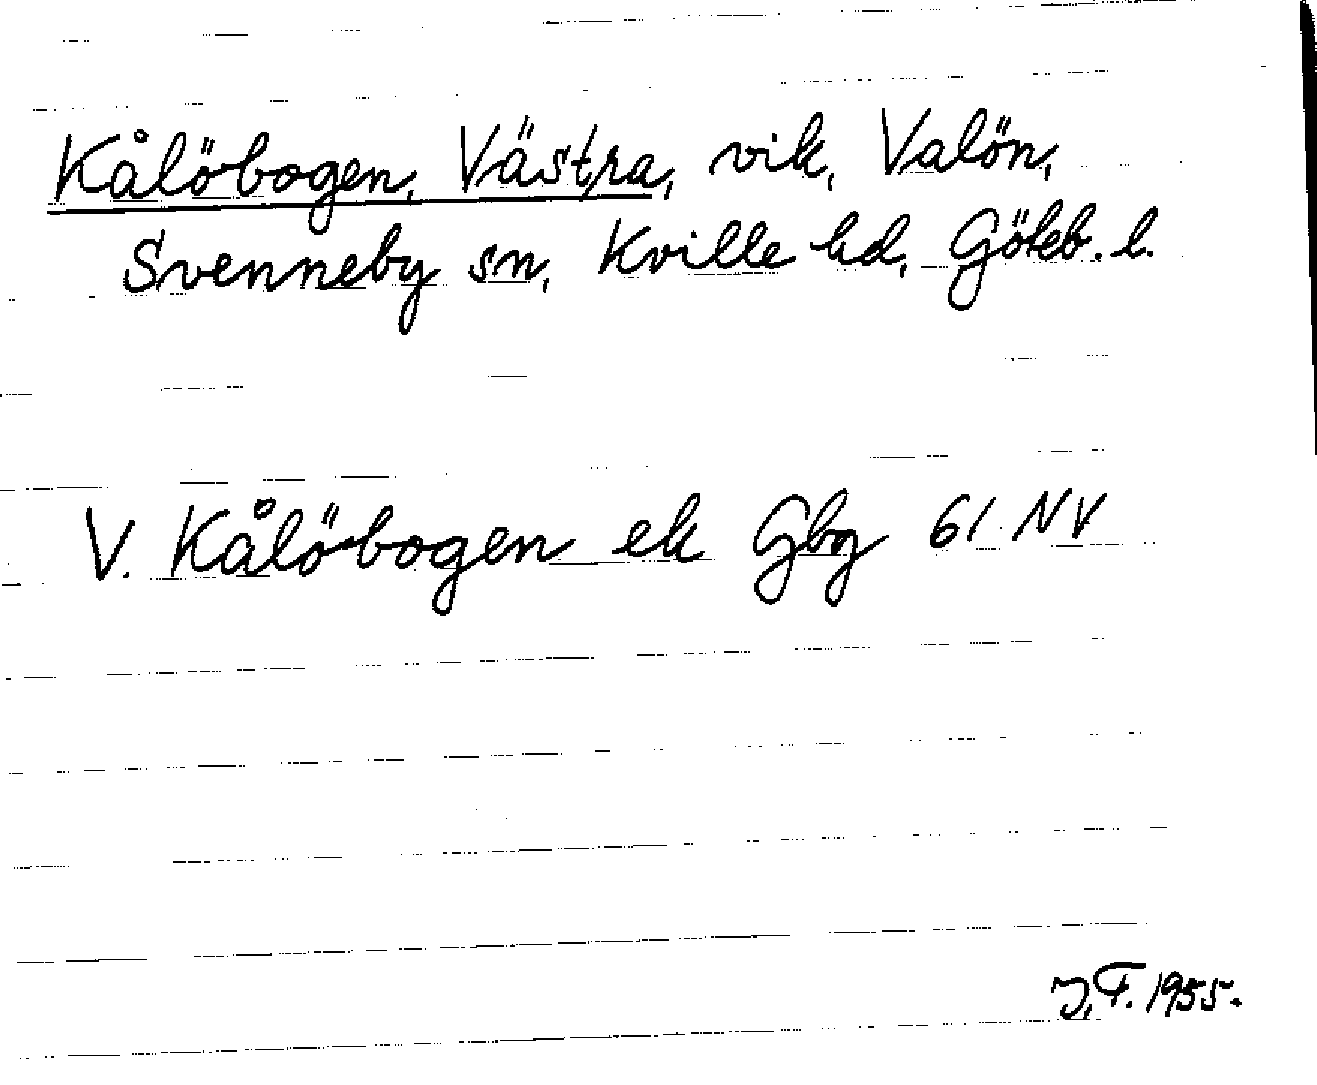 Kålöbogen, Västra, vik, Valön,
Svenneby sn, Kville hd, Göteb. l.
V. Kålöbogen ek Gbg 61 NV
J.F. 1955.